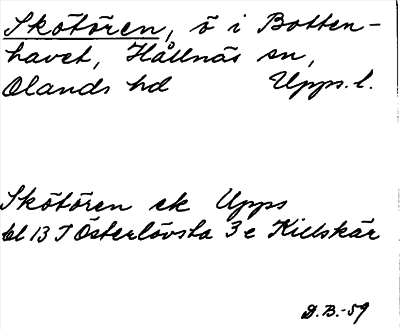 Skötören, ö i Botten-
havet, Hållnäs sn,
Olands hd Upps. l.
Skötören ek Upps
bl 13 I Österlövsta 3 e Killskär
D.B.-59